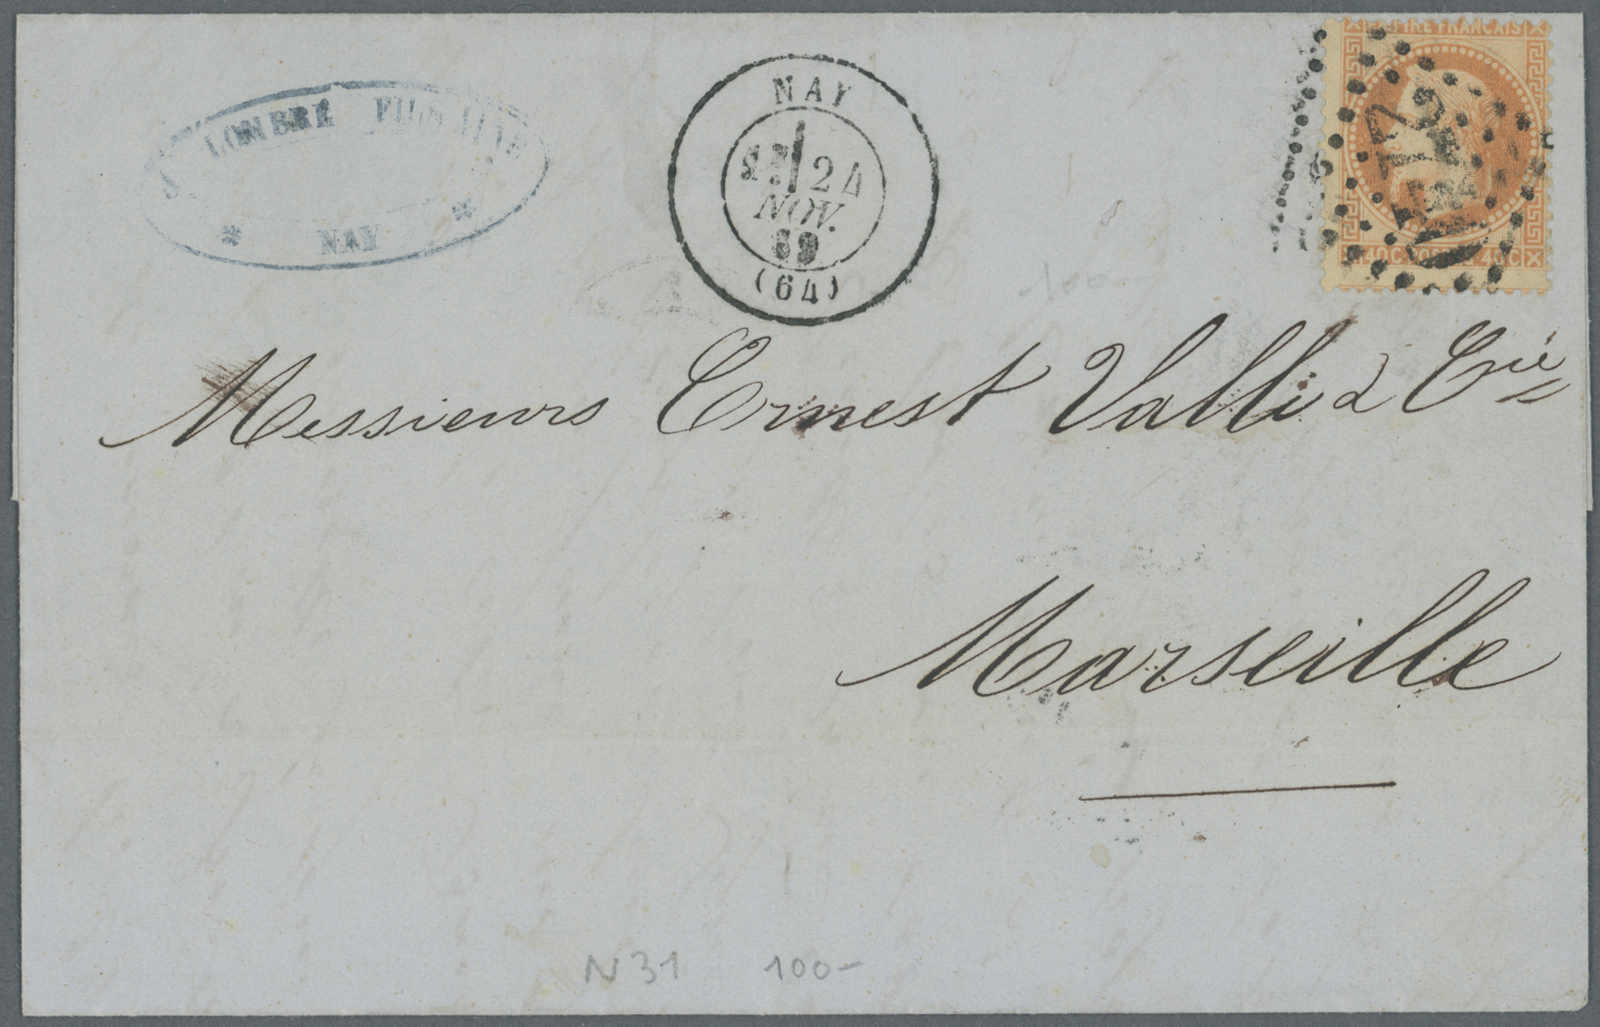 LOMBRÉ FILS
NAY
NAY
24
NOV.
69
(64)
EMPIRE FRANÇAIS
40C 40C
100-
Messieurs Ernest Valli & Cie
Marseille
N31 100-